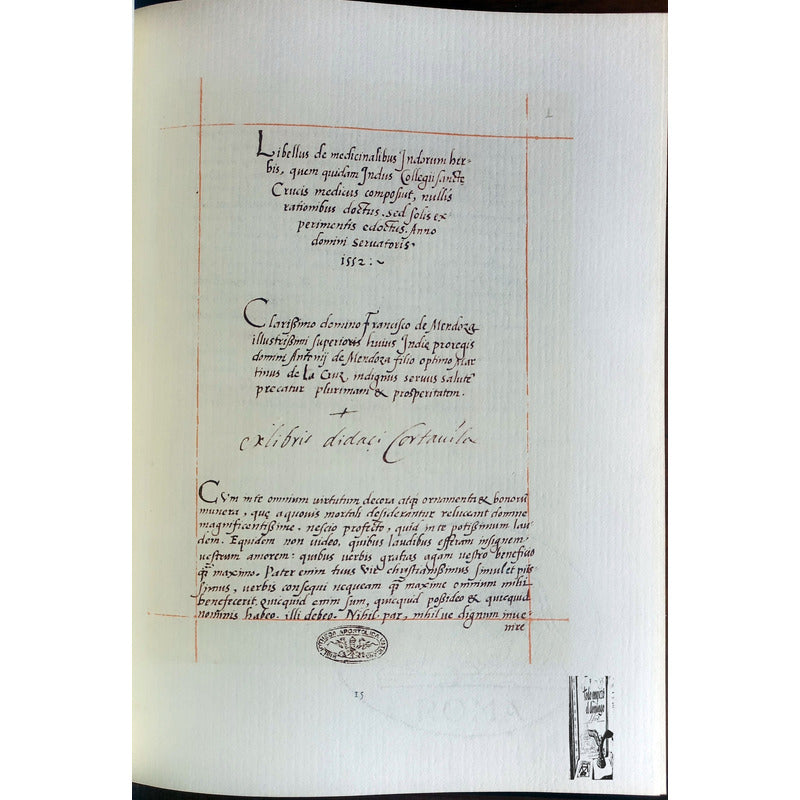 1
Libellus de medicinalibus Indorum her-
bis, quem quidam Indus Collegii sanctę
Crucis medicus composuit, nullis
rationibus doctus, sed solis ex
perimentis edoctus. Anno
domini servatoris.
1552:~
Clarißimo domino Francisco de Mendoza
illustrißimi superioris huius Indię proregis
domini Antonij de Mendoza filio optimo Mar
tinus de la Cruz, indignus servus salutē
precatur plurimam & prosperitatem.
+
ex libris didaci Cortavila
Cum in te omnium virtutum decora atq̃ ornamenta & bonorū
munera, quę a quovis mortali desiderantur reluceant domine
magnificentißime, nescio profecto, quid in te potißimum lau-
dem. Equidem non video, quibus laudibus efferam insignem
vestrum amorem: quibus verbis gratias agam vestro beneficio
q̃ maximo. Pater enim tuus vir christianißimus simul et piis
simus, verbis consequi nequeam q̃ maxime omnium mihi
benefecerit quicquid enim sum, quicquid poßideo & quicquid
nominis habeo. illi debeo. Nihil par, nihil ve dignum inve-
nire
APOSTOLICA
15
AMOX